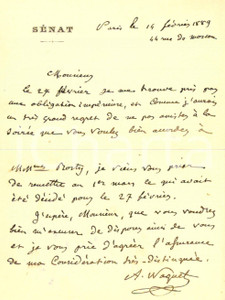 SÉNAT
Paris le 14 février 1889
44 rue de
Monsieur
Le 27 février je me trouve pris par
une obligation impérieuse, et comme j'aurais
un très grand regret de ne pas assister à la
soirée que vous voulez bien accorder à
je viens vous prier de
remettre au 1er mars ce qui avait
été décidé pour le 27 février.
J'espère, Monsieur, que vous voudrez
bien m'excuser de disposer ainsi de vous
et je vous prie d'agréer l'assurance
de ma Considération très-distinguée.
A. Naquet